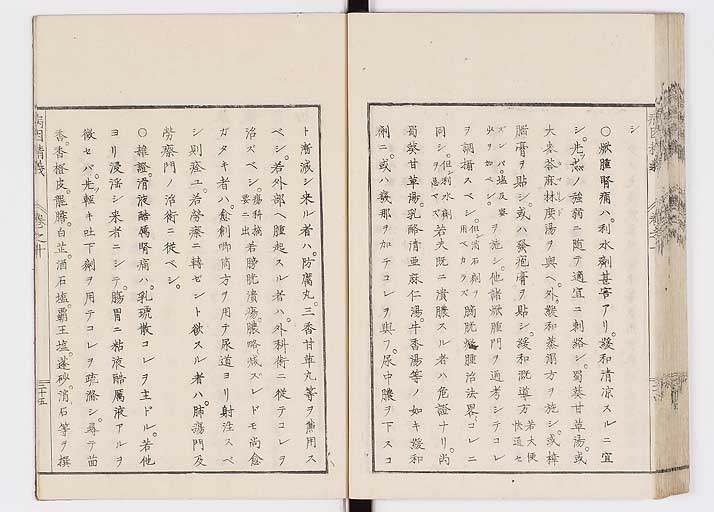 シ
〇焮腫腎痛ハ。利水劑甚害アリ。緩和清凉スルニ宜
シ。先ノ強弱ニ随テ適宜ニ刺絡シ。蜀葵甘草湯。或
大麥荅麻林度湯ヲ與ヘ。外緩和蒸溻方ヲ施シ。或樟
腦膏ヲ貼シ。或ハ發疱膏ヲ貼シ。緩和漑導方若大便快通セ
ズンバ。ヲ加ベシ。ヲ施シ。他諸焮腫門ヲ通考シテコレ
ヲ斟酌スベシ。但硝石劑ヲ用ベカラズ膀胱焮腫治法畧コレニ
同シ。但利水劑ヲ忌ベズ若夫既ニ潰膿スル者ハ危證ナリ。尚
蜀葵甘草湯。乳酪清亜麻仁湯。牛香湯等ノ如キ緩和
劑ニ。或ハ襄那ヲ加テコレヲ與フ。尿中膿ヲ下スコ
ト漸減シ来ル者ハ。防腐丸。三香甘草丸等ヲ兼用ス
ベシ。若外部ヘ腫起スル者ハ。外科術ニ從テコレヲ
治ズベシ。瘍科摘要ニ出若膀胱潰瘍。膿略減ズレドモ尚愈
ガタキ者ハ。愈創喞筒方ヲ用テ尿道ヨリ射注スベ
シ則痊ユ。若勞瘵ニ轉ゼント欲スル者ハ。肺瘍門及
勞瘵門ノ治術ニ從ベシ。
〇雑證。滑液酷厲腎痛ハ。乳琥散コレヲ主ドル。若他
ヨリ浸淫シ来者ニシテ。腸胃ニ粘液酷厲液アルヲ
徴セバ。先輕キ吐下劑ヲ用テコレヲ疏滌シ。尋テ茴
香。香橙皮。羆勝。白芷。酒石塩。覇王塩。蓬砂。消石等ヲ撰
病因精義
巻之十
二十五